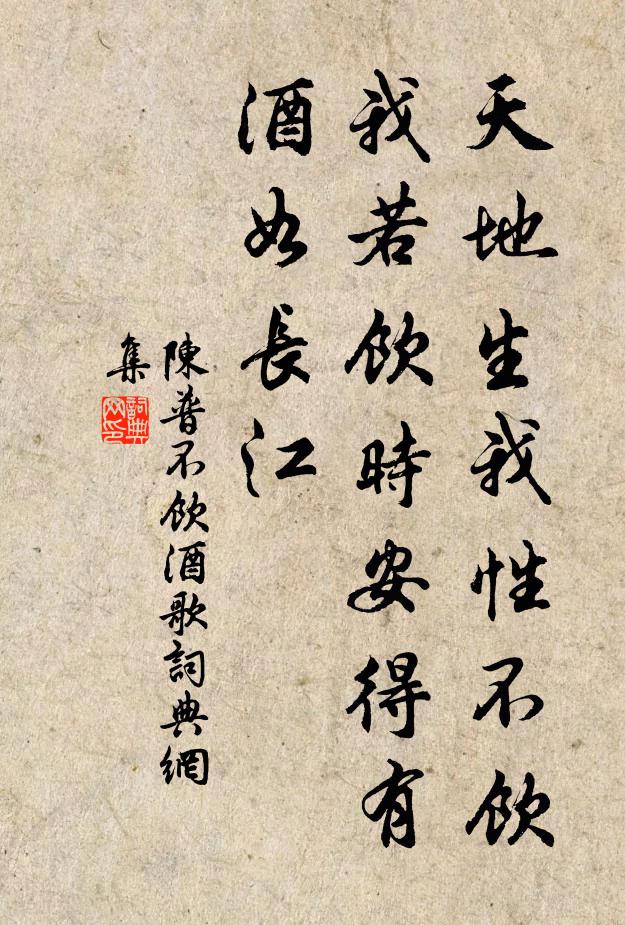 天地生我性不飲
我若飲時安得有
酒如長江
陳普不飲酒歌詞典網
集
詞典
网印